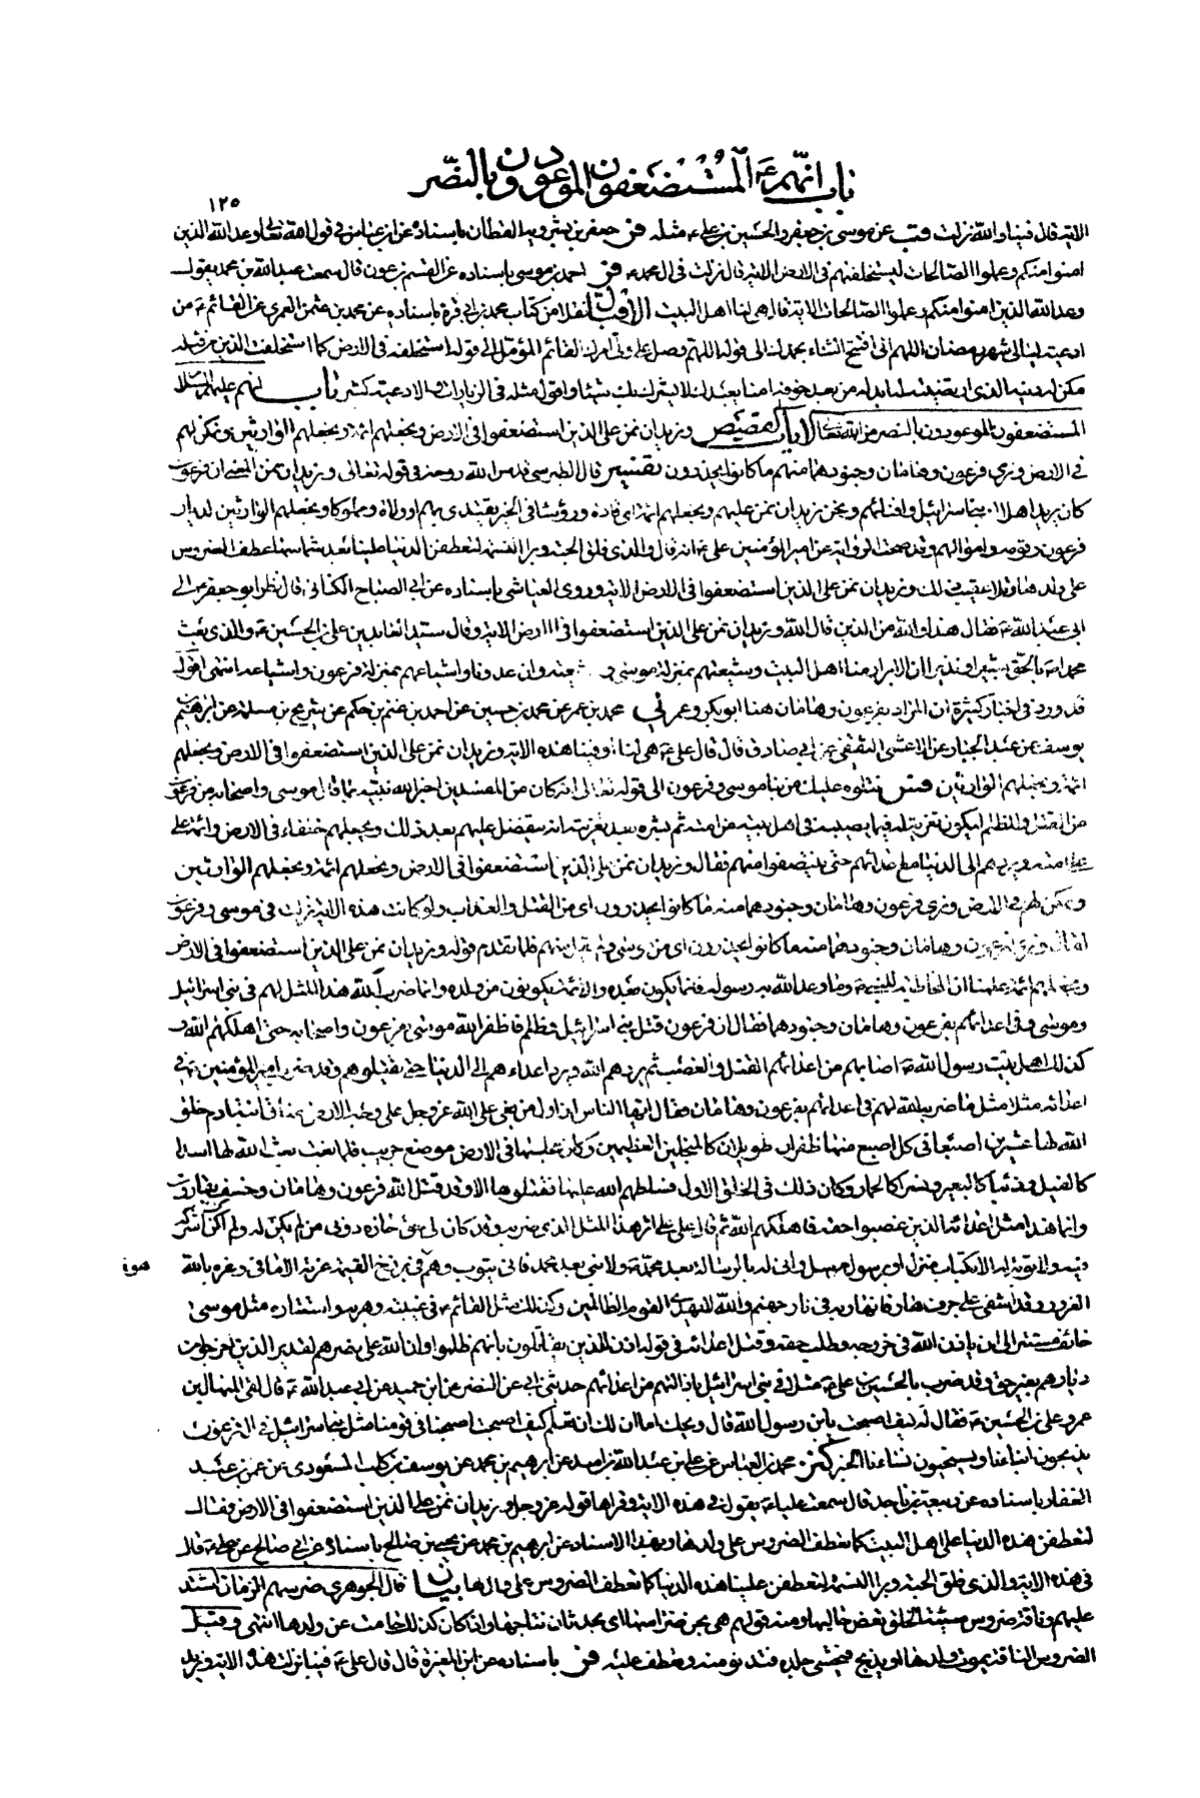 باب انهم ع المستضعفون الموعودون بالنصر
١٢٥
الاية قال فينا والله نزلت وقب عن موسى بن جعفر والحسين بن علي ع مثله فر جعفر بن بشرويه القطان باسناده عن ابن عباس في قول الله تعالى وعد الله الذين
امنوا منكم وعملوا الصالحات ليستخلفنهم في الارض الاية قال نزلت في ال محمد ص فر احمد بن موسى باسناده عن القسم بن عون قال سمعت عبد الله بن محمد يقول
وعد الله الذين امنوا منكم وعملوا الصالحات الاية قال هي لنا اهل البيت الاقبال نقلا من كتاب محمد بن ابي قرة باسناده عن محمد بن عثمن العمري عن القائم ع من
ادعية ليالي شهر رمضان اللهم اني افتتح الثناء بحمدك الى قوله اللهم وصل على ولي امرك القائم المؤمل الى قوله استخلفه في الارض كما استخلفت الذين من قبله
مكن له دينه الذي ارتضيته له ابدله من بعد خوفه امنا يعبدك لا يشرك بك شيئا واقول مثله في الزيارات والادعية كثير باب انهم عليهم السلام
المستضعفون الموعودون بالنصر من الله تعالى الايات القصص ونريد ان نمن على الذين استضعفوا في الارض ونجعلهم ائمة ونجعلهم الوارثين ونمكن لهم
في الارض ونري فرعون وهامان وجنودهما منهم ما كانوا يحذرون تفسير قال الطبرسي قدس الله روحه في قوله تعالى ونريد ان نمن المعنى ان فرعون
كان يريد اهلاك بني اسرائيل وافنائهم ونحن نريد ان نمن عليهم ونجعلهم ائمة اي قادة ورؤساء في الخير يقتدى بهم او ولاة وملوكا ونجعلهم الوارثين لديار
فرعون وقومه واموالهم وقد صحت الرواية عن امير المؤمنين علي ع انه قال والذي فلق الحبة وبرا النسمة لتعطفن الدنيا علينا بعد شماسها عطف الضروس
على ولدها وتلا عقيب ذلك ونريد ان نمن على الذين استضعفوا في الارض الاية وروى العياشي باسناده عن ابي الصباح الكناني قال نظر ابو جعفر ع الى
ابي عبد الله ع فقال هذا والله من الذين قال الله ونريد ان نمن على الذين استضعفوا في الارض الاية وقال سيد العابدين علي بن الحسين ع والذي بعث
محمدا ص بالحق بشيرا ونذيرا ان الابرار منا اهل البيت وشيعتهم بمنزلة موسى وشيعته وان عدونا واشياعهم بمنزلة فرعون واشياعه انتهى اقول
قد ورد في اخبار كثيرة ان المراد بفرعون وهامان هنا ابو بكر وعمر لي محمد بن عمر عن محمد بن حسين عن احمد بن غنم بن حكم عن شريح بن مسلمة عن ابراهيم بن
يوسف عن عبد الجبار عن الاعشى الثقفي عن ابي صادق قال قال علي ع هي لنا او فينا هذه الاية ونريد ان نمن على الذين استضعفوا في الارض ونجعلهم
ائمة ونجعلهم الوارثين فس نتلوه عليك من نبا موسى وفرعون الى قوله تعالى انه كان من المفسدين اخبر الله نبيه بما نال موسى واصحابه من فرعون
من القتل والظلم ليكون تعزية له فيما يصيبه في اهل بيته من امته ثم بشره بعد تعزيته انه يتفضل عليهم بعد ذلك ويجعلهم خلفاء في الارض وائمة على
امته ويردهم الى الدنيا مع اعدائهم حتى ينتصفوا منهم فقال ونريد ان نمن على الذين استضعفوا في الارض ونجعلهم ائمة ونجعلهم الوارثين
ونمكن لهم في الارض ونري فرعون وهامان وجنودهما منهم ما كانوا يحذرون اي من القتل والعذاب ولو كانت هذه الاية نزلت في موسى وفرعون
لقال ونري فرعون وهامان وجنودهما منه ما كانوا يحذرون اي من موسى ولم يقل منهم فلما تقدم قوله ونريد ان نمن على الذين استضعفوا في الارض
ونجعلهم ائمة علمنا ان المخاطبة للنبي ص وما وعد الله به رسوله فانما يكون بعده والائمة يكونون من ولده وانما ضرب الله هذا المثل لهم في بني اسرائيل
وموسى وفي اعدائهم بفرعون وهامان وجنودهما فقال ان فرعون قتل بني اسرائيل فظلم فاظفر الله موسى بفرعون واصحابه حتى اهلكهم الله و
كذلك اهل بيت رسول الله ص اصابهم من اعدائهم القتل والغصب ثم يردهم الله ويرد اعداءهم الى الدنيا حتى يقتلوهم وقد ضرب امير المؤمنين ع في
اعدائه مثلا مثل ما ضرب الله لهم في اعدائهم بفرعون وهامان فقال ايها الناس ان اول من بغى على الله عز وجل على وجه الارض عناق ابنة ادم خلق
الله لها عشرين اصبعا في كل اصبع منها ظفران طويلان كالمنجلين العظيمين وكان مجلسها في الارض موضع جريب فلما بغت بعث الله لها اسدا
كالفيل وذئبا كالبعير ونسرا كالحمار وكان ذلك في الخلق الاول فسلطهم الله عليها فقتلوها الا وقد قتل الله فرعون وهامان وخسف بقارون
وانما هذا مثل اعدائه الذين غصبوا حقه فاهلكهم الله ثم قال علي ع على اثر هذا المثل الذي ضربه وقد كان لي حق حازه دوني من لم يكن له ولم اكن اشركه
فيه ولا توبة له الا بكتاب منزل او برسول مرسل وانى له بالرسالة بعد محمد ص ولا نبي بعد محمد فانى يتوب وهم في برزخ القيمة غرته الاماني وغره بالله
الغرور وقد اشفى على جرف هار فانهار به في نار جهنم والله لا يهدي القوم الظالمين وكذلك مثل القائم ع في غيبته وهربه واستتاره مثل موسى
خائف مستتر الى ان ياذن الله في خروجه وطلب حقه وقتل اعدائه في قوله اذن للذين يقاتلون بانهم ظلموا وان الله على نصرهم لقدير الذين اخرجوا من
ديارهم بغير حق وقد ضرب بالحسين بن علي ع مثلا في بني اسرائيل باذلالهم من اعدائهم حدثني ابي عن النضر عن ابن حميد عن ابي عبد الله ع قال لقى المنهال بن
عمرو علي بن الحسين ع فقال له كيف اصبحت يابن رسول الله قال ويحك اما ان لك ان تعلم كيف اصبحت اصبحنا في قومنا مثل بني اسرائيل في ال فرعون
يذبحون ابناءنا ويستحيون نساءنا الخبر كنز محمد بن العباس عن علي بن عبد الله بن اسد عن ابراهيم بن محمد عن يوسف بن كليب المسعودي عن عمر بن عبد
الغفار باسناده عن ربيعة بن ناجد قال سمعت عليا ع يقول في هذه الاية وقراها قوله عز وجل ونريد ان نمن على الذين استضعفوا في الارض وقال
لتعطفن هذه الدنيا على اهل البيت كما تعطف الضروس على ولدها وبهذا الاسناد عن ابراهيم بن محمد عن يحيى بن صالح باسناده عن ابي صالح عن علي ع قال
في هذه الاية والذي فلق الحبة وبرا النسمة لتعطفن علينا هذه الدنيا كما تعطف الضروس على ولدها بيان قال الجوهري ضرسهم الزمان اشتد
عليهم وناقة ضروس سيئة الخلق تعض حالبها ومنه قولهم هي بجن ضراسها اي بحدثان نتاجها واذا كان كذلك حامت عن ولدها انتهى وقيل
الضروس الناقة يموت ولدها او يذبح فيحشى جلده فتدنو منه وتعطف عليه فر باسناده عن ابن المغيرة قال قال علي ع فينا نزلت هذه الاية ونريد